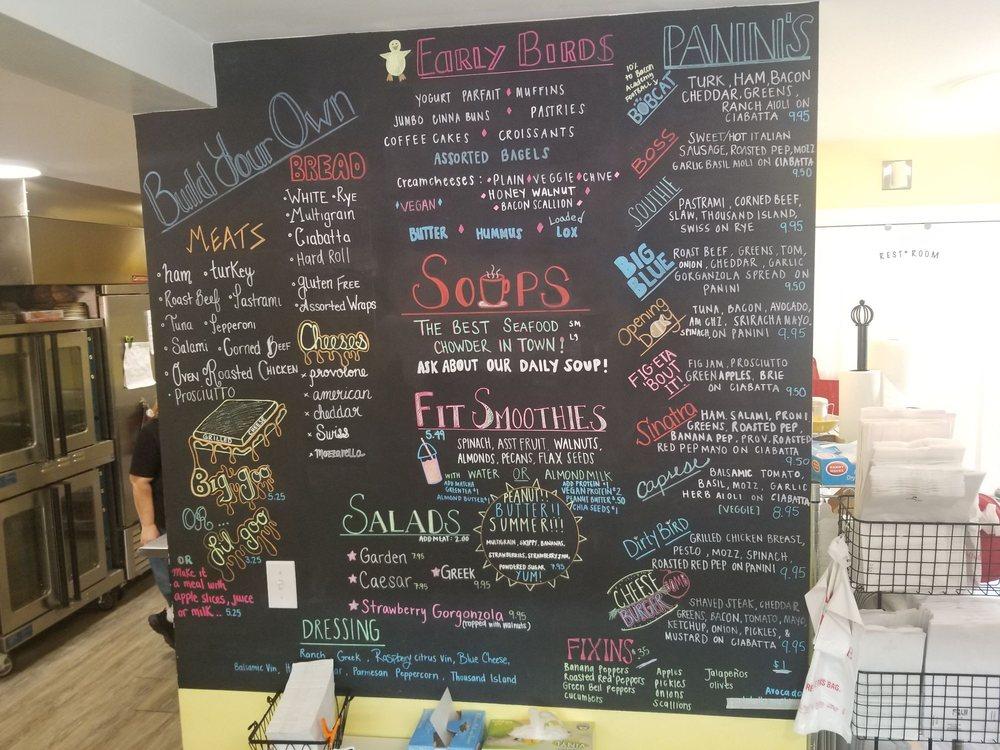 Build Your Own
MEATS
ham • turkey
Roast Beef • Pastrami
Tuna • Pepperoni
Salami • Corned Beef
Oven Roasted Chicken
Prosciutto
BREAD
White • Rye
Multigrain
Ciabatta
Hard Roll
Gluten Free
Assorted Wraps
Cheeses
provolone
american
cheddar
Swiss
Mozzarella
GRILLED CHEESE
Big goo
5.25
OR...
Lil goo
3.25
OR
make it
a meal with
apple slices, juice
or milk.. 5.25
EARLY BIRDS
YOGURT PARFAIT ♦ MUFFINS
JUMBO CINNA BUNS ♦ PASTRIES
COFFEE CAKES ♦ CROISSANTS
ASSORTED BAGELS
Creamcheeses: • PLAIN ♦ VEGGIE ♦ CHIVE ♦
♦ HONEY WALNUT ♦
♦ VEGAN ♦
♦ BACON SCALLION ♦
BUTTER ♦ HUMMUS ♦ Loaded LOX
SOUPS
THE BEST SEAFOOD
CHOWDER IN TOWN!
SM
LG
ASK ABOUT OUR DAILY SOUP!
FIT SMOOTHIES
5.49
SPINACH, ASST FRUIT, WALNUTS,
ALMONDS, PECANS, FLAX SEEDS
WITH WATER OR ALMONDMILK
ADD MATCHA
GREEN TEA $1
ALMOND BUTTER $1
ADD PROTEIN $1
VEGAN PROTEIN $2
PEANUT BUTTER $.50
CHIA SEEDS $1
PEANUT!!
BUTTER!!
SUMMER!!!
MULTIGRAIN, SKIPPY, BANANAS,
STRAWBERRIES, STRAWBERRY JAM,
POWDERED SUGAR 7.95
YUM!
SALADS
ADD MEAT: 2.00
Garden 7.95
Caesar 7.95
GREEK 9.95
Strawberry Gorgonzola 9.95
(topped with walnuts)
DRESSING
Ranch, Greek, Raspberry citrus Vin, Blue Cheese,
Balsamic Vin, Parmesan Peppercorn, Thousand Island
PANINI'S
10%
to Bacon
Academy
FOOTBALL
BOBCAT
TURK, HAM, BACON
CHEDDAR, GREENS,
RANCH AIOLI ON
CIABATTA 9.95
BOSS
SWEET/HOT ITALIAN
SAUSAGE, ROASTED PEP, MOZZ
GARLIC BASIL AIOLI ON CIABATTA
9.50
SOUTHIE
PASTRAMI, CORNED BEEF,
SLAW, THOUSAND ISLAND,
SWISS ON RYE 9.95
BIG
BLUE
ROAST BEEF, GREENS, TOM,
ONION, CHEDDAR, GARLIC
GORGANZOLA SPREAD ON
PANINI 9.50
Opening
DAY
TUNA, BACON, AVOCADO,
AM CHZ. SRIRACHA MAYO,
SPINACH, ON PANINI 9.95
FIGETA
BOUT
IT!
FIG JAM, PROSCIUTTO
GREEN APPLES, BRIE
ON CIABATTA 9.50
Sinatra
HAM, SALAMI, PRONI
GREENS, ROASTED PEP,
BANANA PEP, PROV, ROASTED
RED PEP MAYO ON CIABATTA
9.50
Caprese
BALSAMIC TOMATO,
BASIL, MOZZ, GARLIC
HERB AIOLI ON CIABATTA
[VEGGIE] 8.95
DIRTY BIRD
GRILLED CHICKEN BREAST,
PESTO, MOZZ, SPINACH,
ROASTED RED PEP ON PANINI 9.95
CHEESE
BURGER
BOMB
SHAVED STEAK, CHEDDAR
GREENS, BACON, TOMATO, MAYO
KETCHUP, ONION, PICKLES, &
MUSTARD ON CIABATTA 9.95
FIXINS $.35
Banana Peppers
Roasted Red Peppers
Green Bell Peppers
cucumbers
Apples
pickles
onions
scallions
Jalapeños
olives
$1
Avocado
REST • ROOM